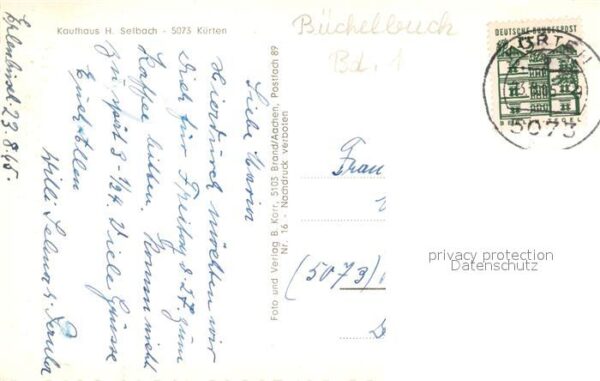 Kaufhaus H. Selbach - 5073 Kürten
Büchelbuch
Bd. 1
DEUTSCHE BUNDESPOST
KÜRTEN
5073
23.8.65.
Liebe Maria
Hierdurch möchten wir
Dich für Freitag d. 27. zum
Kaffee bitten. Komm nicht
zu spät 3 - 1/2 4. Viele Grüsse
Euch Allen
Willi
Foto und Verlag B. Korr, 5103 Brand/Aachen, Postfach 89
Nr. 16 - Nachdruck verboten
Frau
(5073)
privacy protection
Datenschutz